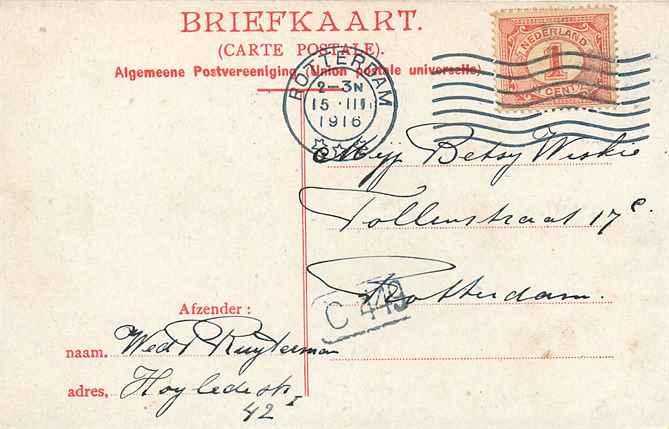 BRIEFKAART.
(CARTE POSTALE).
Algemeene Postvereeniging (Union postale universelle)
NEDERLAND
1
CENT
ROTTERDAM
2-3N
15 · III
1916
Mej Betsy
Tollenstraat 17c
Rotterdam.
C 449
Afzender :
naam. Wed P Ruyterman
adres, Hoyledestr
42 I